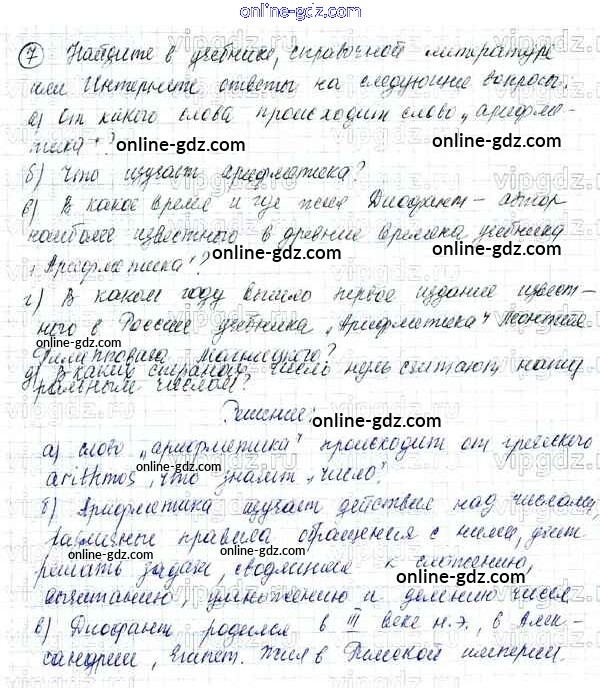 online-gdz.com
7 Найдите в учебнике, справочной литературе
или Интернете ответы на следующие вопросы.
а) От какого слова происходит слово „арифме-
тика"?
online-gdz.com online-gdz.com
б) Что изучает арифметика?
в) В какое время и где жил Диофант – автор
наиболее известного в древние времена учебника
„Арифметика"?
online-gdz.com online-gdz.com
г) В каком году вышло первое издание извест-
ного в России учебника „Арифметика" Леонтия
Филипповича Магницкого?
online-gdz.com online-gdz.com
д) В каких странах число нуль считают нату
ральным числом?
Решение:
online-gdz.com
а) слово „арифметика" происходит от греческого
arithmos, что значит „число".
online-gdz.com online-gdz.com
б) Арифметика изучает действие над числами,
различные правила обращения с ними, учит
online-gdz.com online-gdz.com
решать задачи, сводящиеся к сложению,
вычитанию, умножению и делению чисел
online-gdz.com online-gdz.com
в) Диофант родился в III веке н.э., в Алек-
сандрии, Египет. Жил в Римской империи.
online-gdz.com online-gdz.com